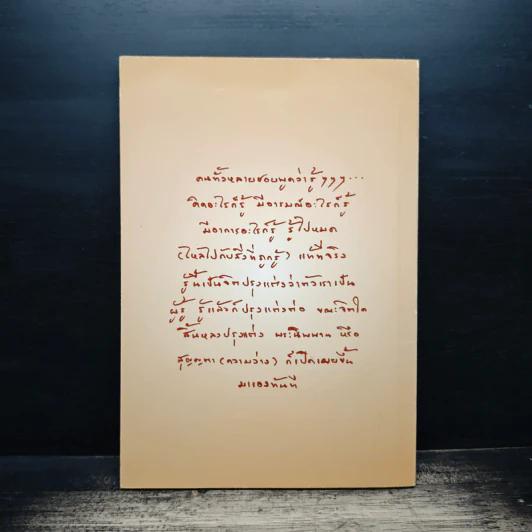 คนทั้วหลายชอบพูดว่ารู้ ๆๆๆ...
คิดอะไรก็รู้ มีอารมณ์อะไรก็รู้
มีอาการอะไรก็รู้ รู้ไปหมด
(ไหลไปกับสิ่งที่ถูกรู้) แท้ที่จริง
รู้นี้เป็นจิตปรุงแต่งว่าตัวเราเป็น
ผู้รู้ รู้แล้วก็ปรุงแต่งต่อ ขณะจิตใด
สิ้นหลงปรุงแต่ง พระนิพพาน หรือ
สุญญตา (ความว่าง) ก็เปิดเผยขึ้น
มาเองทันที